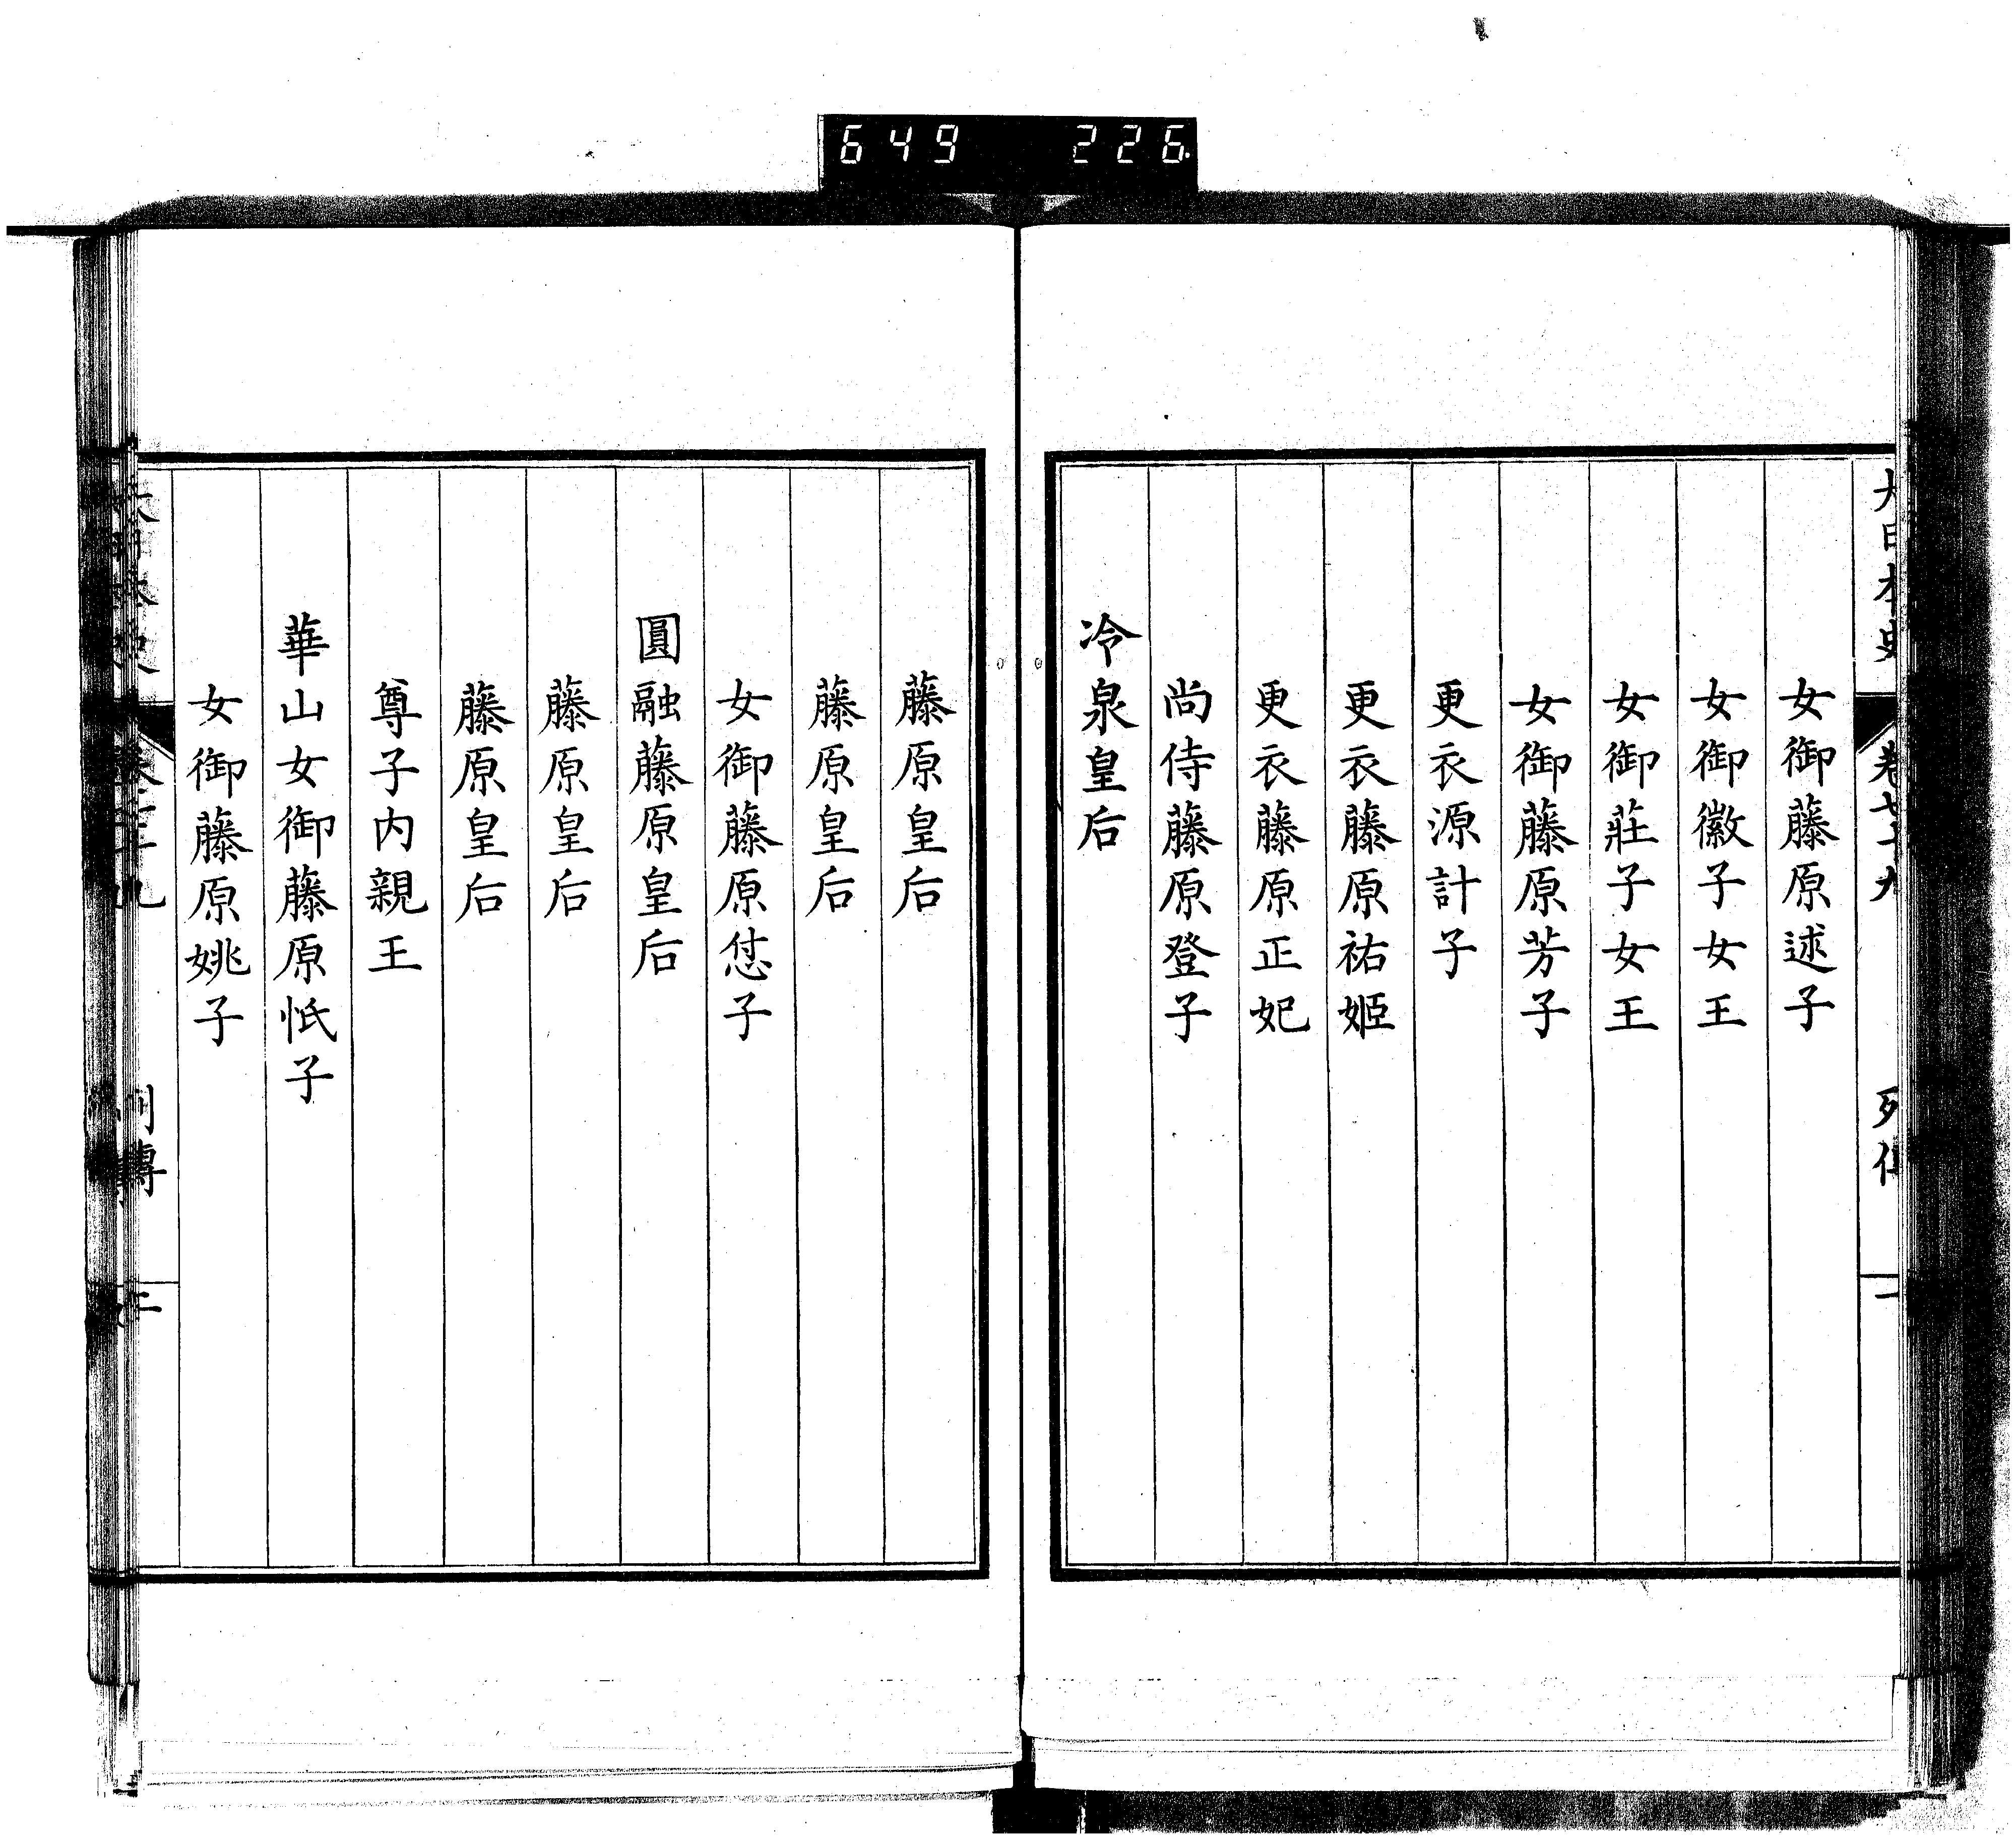 649 226
大日本史 卷七十九 列傳 一
女御藤原述子
女御徽子女王
女御莊子女王
女御藤原芳子
更衣源計子
更衣藤原祐姬
更衣藤原正妃
尚侍藤原登子
冷泉皇后
藤原皇后
藤原皇后
女御藤原怤子
圓融藤原皇后
藤原皇后
藤原皇后
尊子內親王
華山女御藤原忯子
女御藤原姚子
列傳 二